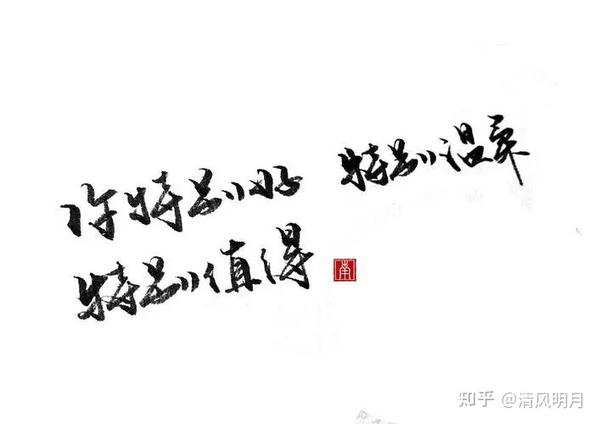 你特别好
特别温柔
特别值得
南
知乎 @清风明月